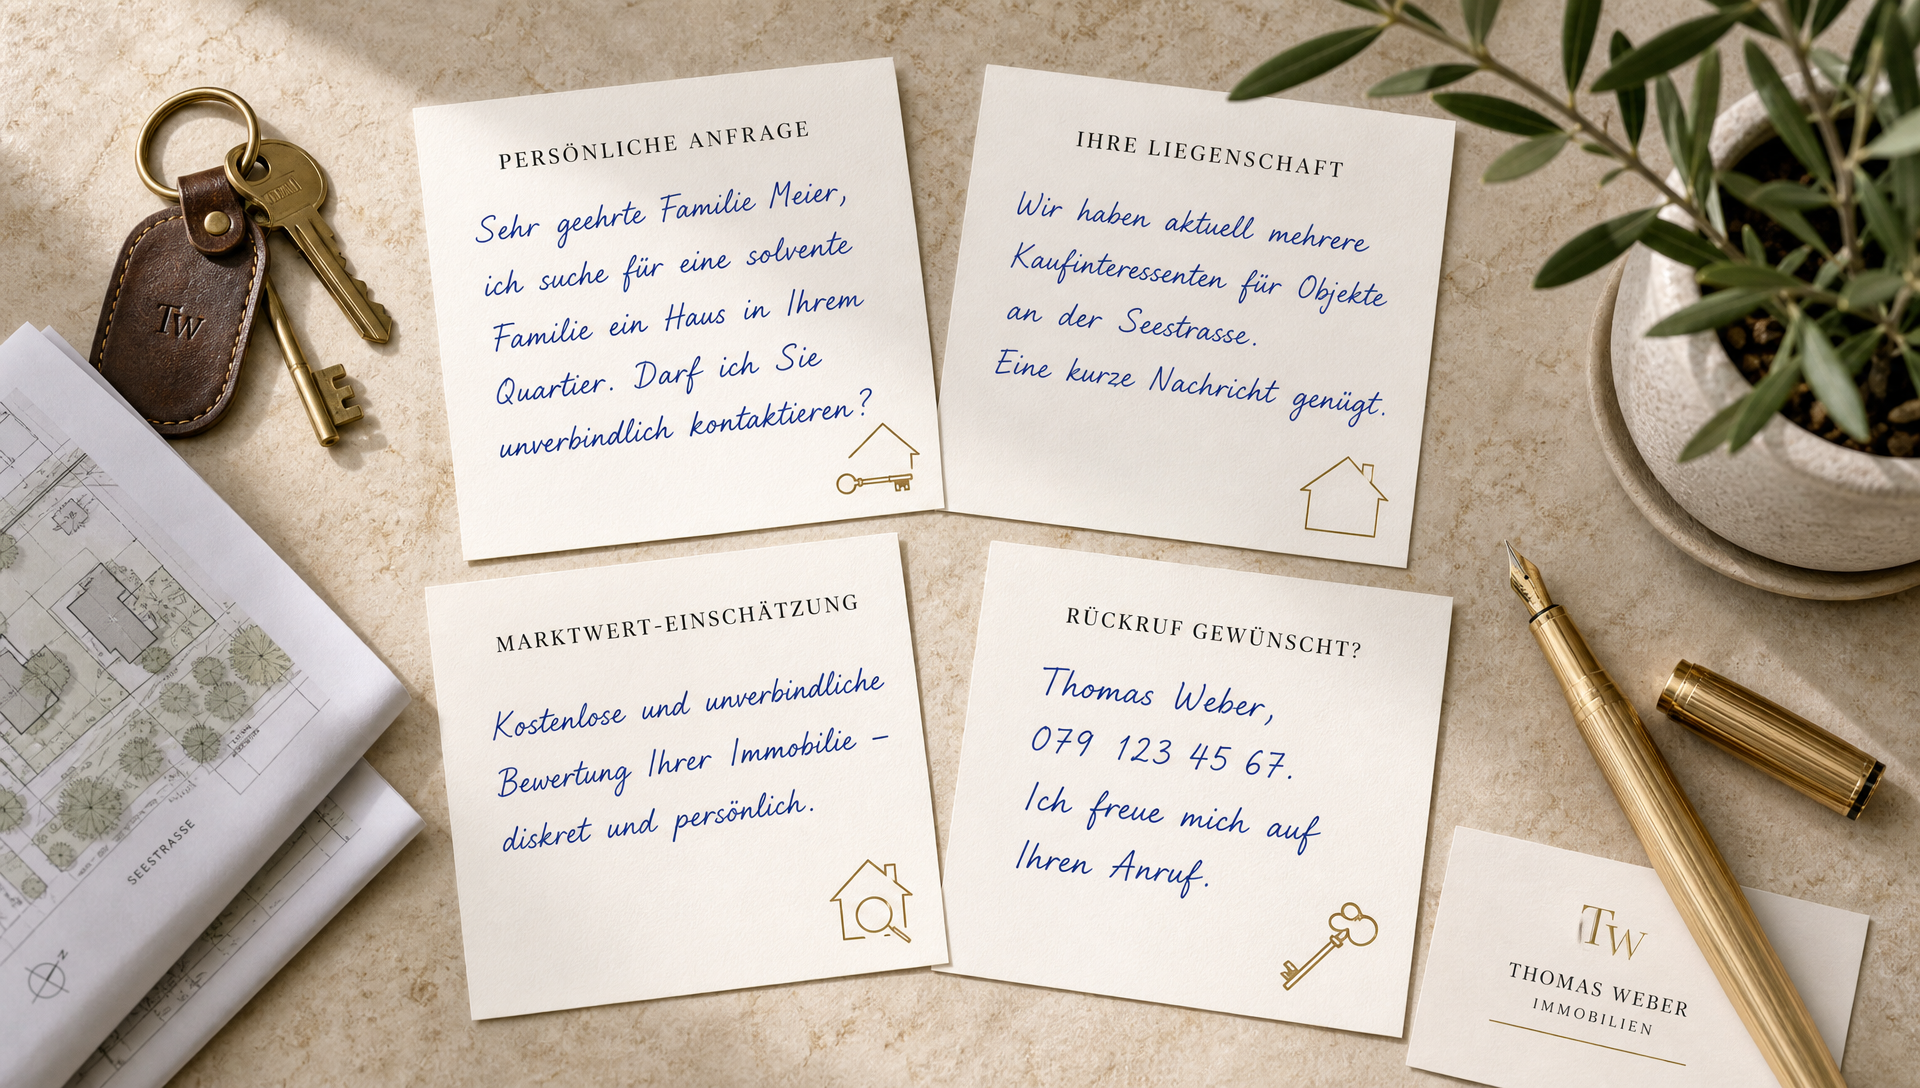 PERSÖNLICHE ANFRAGE
Sehr geehrte Familie Meier,
ich suche für eine solvente
Familie ein Haus in Ihrem
Quartier. Darf ich Sie
unverbindlich kontaktieren?
IHRE LIEGENSCHAFT
Wir haben aktuell mehrere
Kaufinteressenten für Objekte
an der Seestrasse.
Eine kurze Nachricht genügt.
MARKTWERT-EINSCHÄTZUNG
Kostenlose und unverbindliche
Bewertung Ihrer Immobilie –
diskret und persönlich.
RÜCKRUF GEWÜNSCHT?
Thomas Weber,
079 123 45 67.
Ich freue mich auf
Ihren Anruf.
TW
SEESTRASSE
N
TW
THOMAS WEBER
IMMOBILIEN